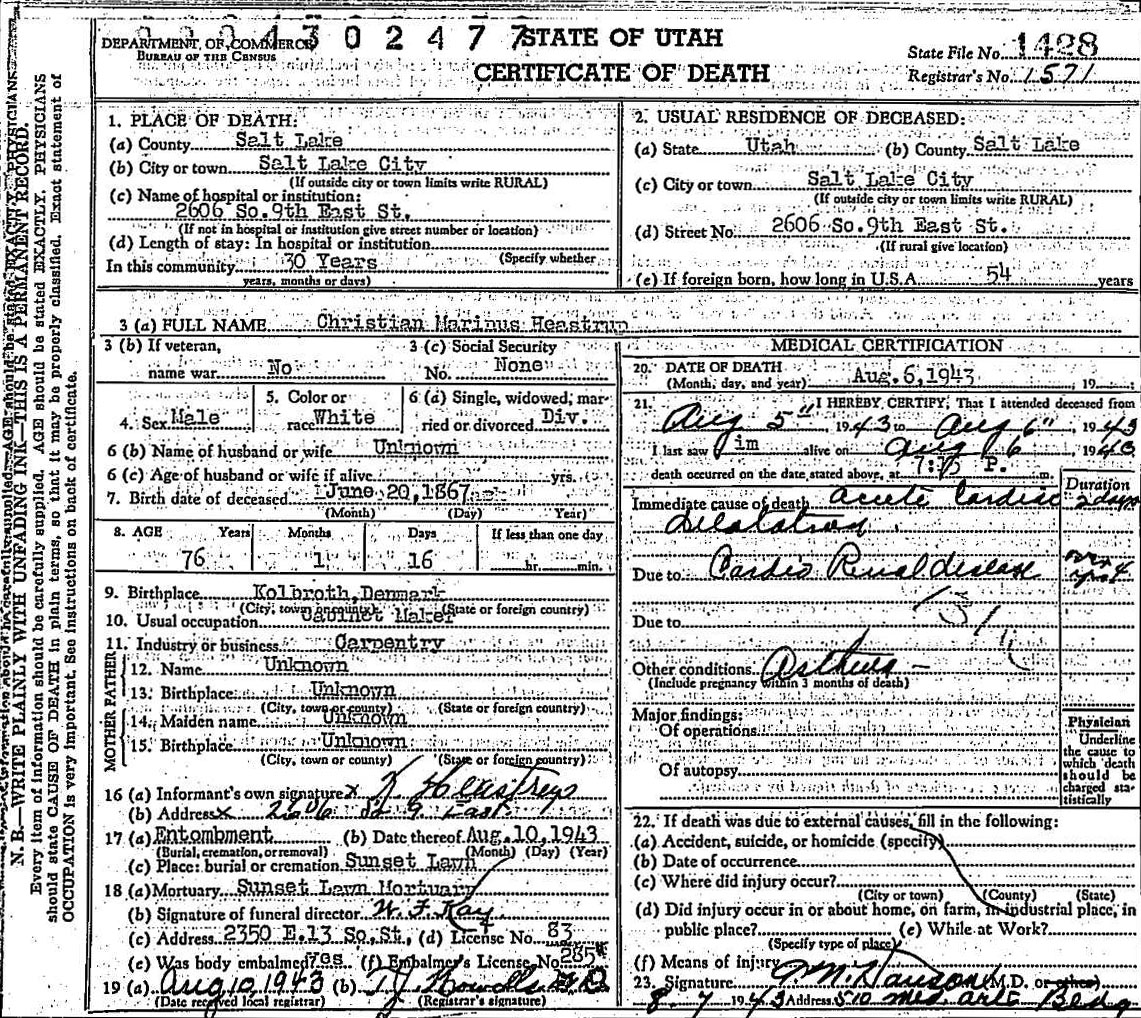 DEPARTMENT OF COMMERCE
BUREAU OF THE CENSUS
4302477
STATE OF UTAH
CERTIFICATE OF DEATH
State File No. 1428
Registrar's No. 1571
N. B.—WRITE PLAINLY WITH UNFADING INK—THIS IS A PERMANENT RECORD.
Every item of information should be carefully supplied. AGE should be stated EXACTLY. PHYSICIANS
should state CAUSE OF DEATH in plain terms, so that it may be properly classified. Exact statement of
OCCUPATION is very important. See instructions on back of certificate.
1. PLACE OF DEATH:
(a) County Salt Lake
(b) City or town Salt Lake City
(If outside city or town limits write RURAL)
(c) Name of hospital or institution:
2606 So.9th East St.
(If not in hospital or institution give street number or location)
(d) Length of stay: In hospital or institution
(Specify whether
In this community 30 Years
years, months or days)
2. USUAL RESIDENCE OF DECEASED:
(a) State Utah (b) County Salt Lake
(c) City or town Salt Lake City
(If outside city or town limits write RURAL)
(d) Street No. 2606 So.9th East St.
(If rural give location)
(e) If foreign born, how long in U.S.A. 54 years
3 (a) FULL NAME Christian Marinus Heastrup
3 (b) If veteran,
name war No
3 (c) Social Security
No. None
4. Sex Male
5. Color or
race White
6 (a) Single, widowed, mar-
ried or divorced Div.
6 (b) Name of husband or wife Unknown
6 (c) Age of husband or wife if alive yrs.
7. Birth date of deceased June 20, 1867
(Month) (Day) Year)
8. AGE Years Months Days If less than one day
76 1 16 hr. min.
9. Birthplace Kolbroth, Denmark
(City, town or county) (State or foreign country)
10. Usual occupation Cabinet Maker
11. Industry or business Carpentry
FATHER
12. Name Unknown
13. Birthplace Unknown
(City, town or county) (State or foreign country)
MOTHER
14. Maiden name Unknown
15. Birthplace Unknown
(City, town or county) (State or foreign country)
16 (a) Informant's own signature x
(b) Address x 2606 9 East
17 (a) Entombment (b) Date thereof Aug.10,1943
(Burial, cremation, or removal) (Month) (Day) (Year)
(c) Place: burial or cremation Sunset Lawn
18 (a) Mortuary Sunset Lawn Mortuary
(b) Signature of funeral director W. F. Kay
(c) Address 2350 E.13 So.St. (d) License No. 83
(e) Was body embalmed? Yes (f) Embalmer's License No. 285
19 (a) Aug 10 1943 (b) T.J. Howells
(Date received local registrar) (Registrar's signature)
MEDICAL CERTIFICATION
20. DATE OF DEATH
(Month, day, and year) Aug.6,1943 , 19
21. I HEREBY CERTIFY, That I attended deceased from
Aug 5" , 1943 to Aug 6" , 1943
I last saw him alive on Aug 6 , 1943
death occurred on the date stated above, at P. m.
Duration
Immediate cause of death Acute Cardiac 2 days
Dilatation
Due to Cardio Renal disease yrs 4
Due to
131
Other conditions Asthma —
(Include pregnancy within 3 months of death)
Major findings:
Of operations
Of autopsy
Physician
Underline
the cause to
which death
should be
charged sta-
tistically
22. If death was due to external causes, fill in the following:
(a) Accident, suicide, or homicide (specify)
(b) Date of occurrence
(c) Where did injury occur?
(City or town) (County) (State)
(d) Did injury occur in or about home, on farm, in industrial place, in
public place? (e) While at Work?
(Specify type of place)
(f) Means of injury
23. Signature Hanson (M.D. or other)
8-7 1943 Address 510 Med. Arts Bldg